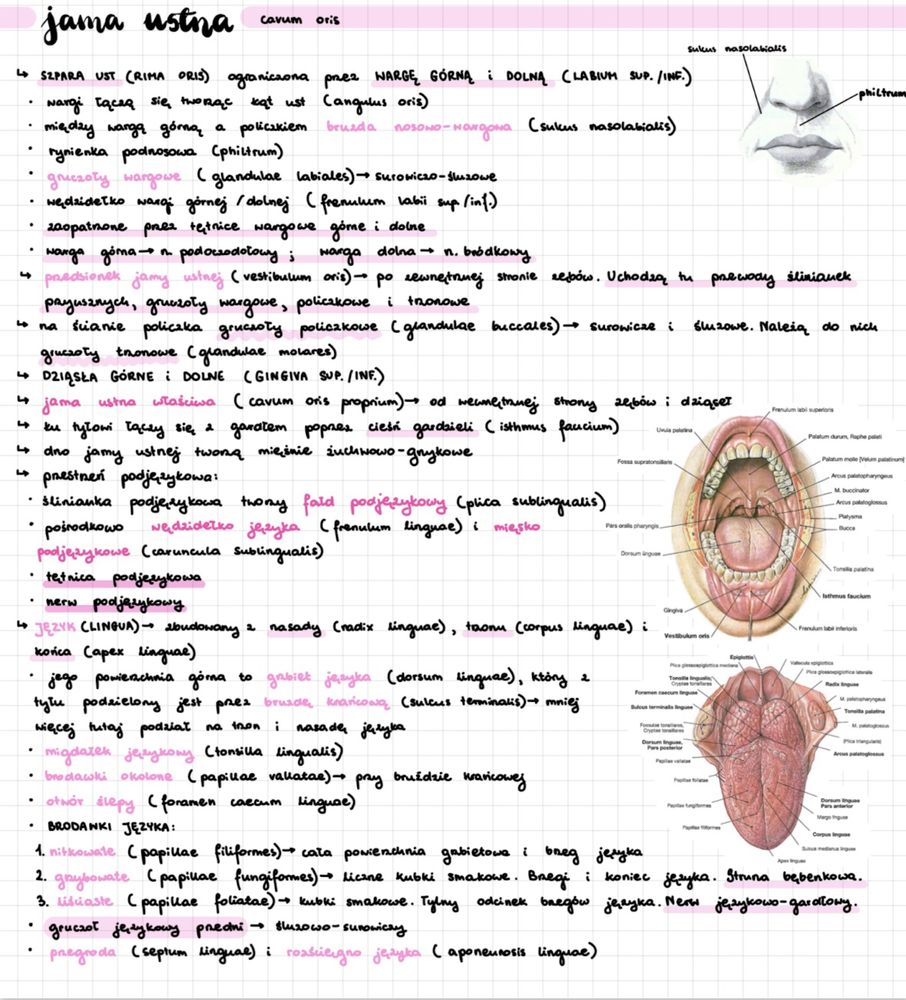 jama ustna cavum oris
sulcus nasolabialis
philtrum
↳ SZPARA UST (RIMA ORIS) ograniczona przez WARGĘ GÓRNĄ i DOLNĄ (LABIUM SUP./INF.)
• wargi łączą się tworząc kąt ust (angulus oris)
• między wargą górną a policzkiem bruzda nosowo-wargowa (sulcus nasolabialis)
• rynienka podnosowa (philtrum)
• gruczoły wargowe (glandulae labiales)→ surowiczo-śluzowe
• wędzidełko wargi górnej/dolnej (frenulum labii sup/inf.)
• zaopatrzone przez tętnice wargowe górne i dolne
• warga górna→ n. podoczodołowy ; warga dolna→ n. bródkowy
↳ przedsionek jamy ustnej (vestibulum oris)→ po zewnętrznej stronie zębów. Uchodzą tu przewody ślinianek
przyusznych, gruczoły wargowe, policzkowe i trzonowe
↳ na ścianie policzka gruczoły policzkowe (glandulae buccales)→ surowicze i śluzowe. Należą do nich
gruczoły trzonowe (glandulae molares)
↳ DZIĄSŁA GÓRNE i DOLNE (GINGIVA SUP./INF.)
↳ jama ustna właściwa (cavum oris proprium)→ od wewnętrznej strony zębów i dziąseł
↳ ku tyłowi łączy się z gardłem poprzez cieśń gardzieli (isthmus faucium)
↳ dno jamy ustnej tworzą mięśnie żuchwowo-gnykowe
↳ przestrzeń podjęzykowa:
• ślinianka podjęzykowa tworzy fałd podjęzykowy (plica sublingualis)
• pośrodkowo wędzidełko języka (frenulum linguae) i mięsko
podjęzykowe (caruncula sublingualis)
• tętnica podjęzykowa
• nerw podjęzykowy
↳ JĘZYK (LINGUA)→ zbudowany z nasady (radix linguae), trzonu (corpus linguae) i
końca (apex linguae)
• jego powierzchnia górna to grzbiet języka (dorsum linguae), który z
tyłu podzielony jest przez bruzdę krańcową (sulcus terminalis)→ mniej
więcej tutaj podział na trzon i nasadę języka
• migdałek językowy (tonsilla lingualis)
• brodawki okolone (papillae vallatae)→ przy bruździe krańcowej
• otwór ślepy (foramen caecum linguae)
• BRODAWKI JĘZYKA:
1. nitkowate (papillae filiformes)→ cała powierzchnia grzbietowa i brzeg języka
2. grzybowate (papillae fungiformes)→ liczne kubki smakowe. Brzegi i koniec języka. Struna bębenkowa.
3. liściaste (papillae foliatae)→ kubki smakowe. Tylny odcinek brzegów języka. Nerw językowo-gardłowy.
• gruczoł językowy przedni → śluzowo-surowiczy
• przegroda (septum linguae) i rozścięgno języka (aponeurosis linguae)
Frenulum labii superioris
Uvula palatina
Palatum durum, Raphe palati
Fossa supratonsillaris
Palatum molle [Velum palatinum]
Arcus palatopharyngeus
M. buccinator
Arcus palatoglossus
Platysma
Pars oralis pharyngis
Bucca
Dorsum linguae
Tonsilla palatina
Isthmus faucium
Gingiva
Frenulum labii inferioris
Vestibulum oris
Epiglottis
Plica glossoepiglottica mediana
Vallecula epiglottica
Plica glossoepiglottica lateralis
Tonsilla lingualis;
Cryptae tonsillares
Radix linguae
Foramen caecum linguae
M. palatopharyngeus
Sulcus terminalis linguae
Tonsilla palatina
Fossulae tonsillares;
Cryptae tonsillares
M. palatoglossus
(Plica triangularis)
Dorsum linguae,
Pars posterior
Arcus palatoglossus
Papillae vallatae
Papillae foliatae
Papillae fungiformes
Dorsum linguae
Pars anterior
Margo linguae
Papillae filiformes
Corpus linguae
Sulcus medianus linguae
Apex linguae